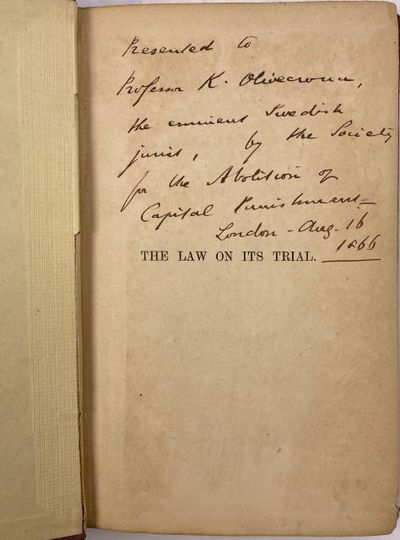 Presented to
Professor K. Olivecrona,
the eminent Swedish
jurist, by the Society
for the Abolition of
Capital Punishment
London - Aug. 16
1866
THE LAW ON ITS TRIAL.